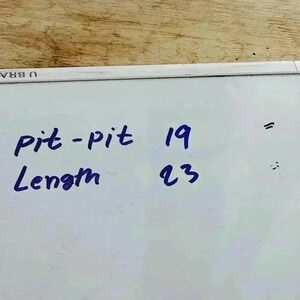 U BRA
pit-pit 19
Length 23